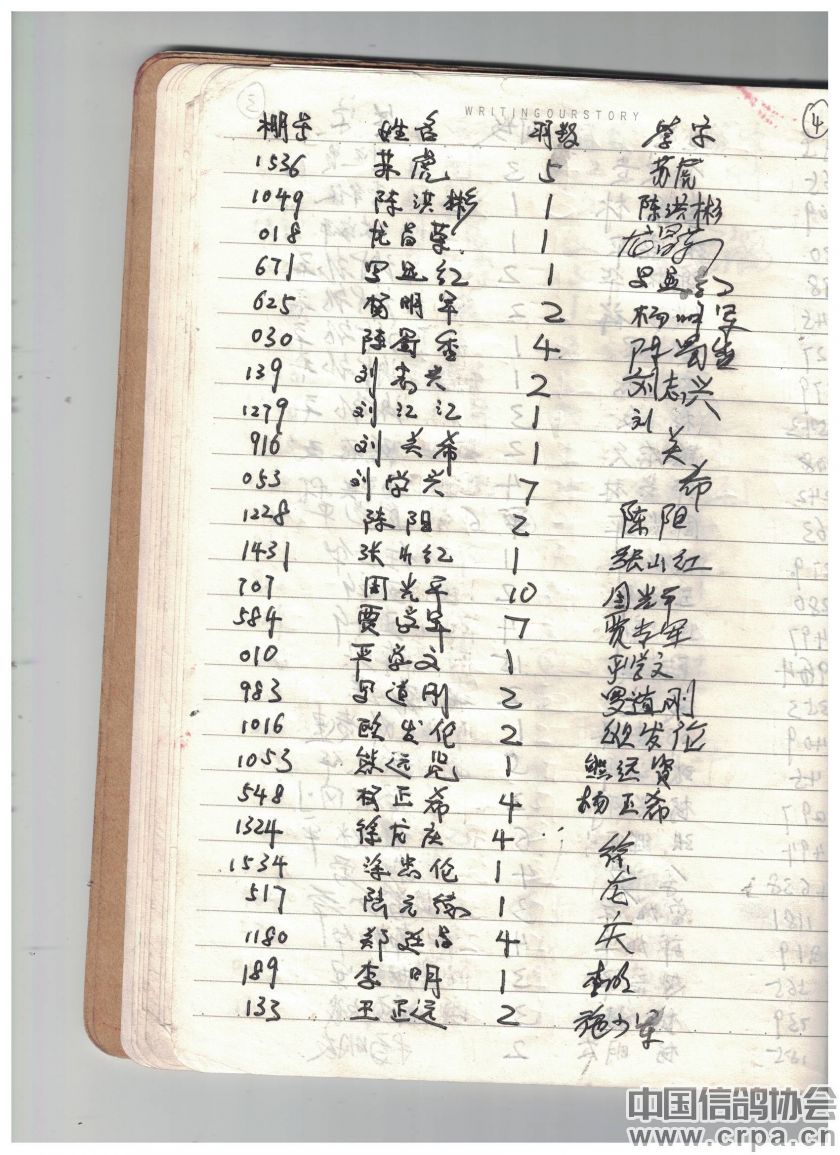 ③ WRITINGOURSTORY ④
棚号 姓名 羽数 签字
1536 苏虎 5 苏虎
1049 陈洪彬 1 陈洪彬
018 龙昌荣 1
671 罗显红 1 罗显红
625 杨明军 2 杨明军
030 陈蜀香 4 陈蜀
139 刘志兴 2 刘志兴
1279 刘江江 1 刘
916 刘美希 1 美
053 刘学兴 7 希
1228 陈阳 2 陈阳
1431 张山红 1 张山红
707 周光平 10 周光平
584 贾学军 7 贾学军
010 平学文 1 平学文
983 罗道刚 2 罗道刚
1016 欧发伦 2 欧发伦
1053 熊远 1 熊远贤
548 杨正希 4 杨正希
1324 徐龙庆 4 徐
1534 涂忠伦 1 龙
517 陆元 1 庆
1180 郑廷昌 4
189 李明 1 李明
133 王正远 2 施少军
中国信鸽协会
www.crpa.cn